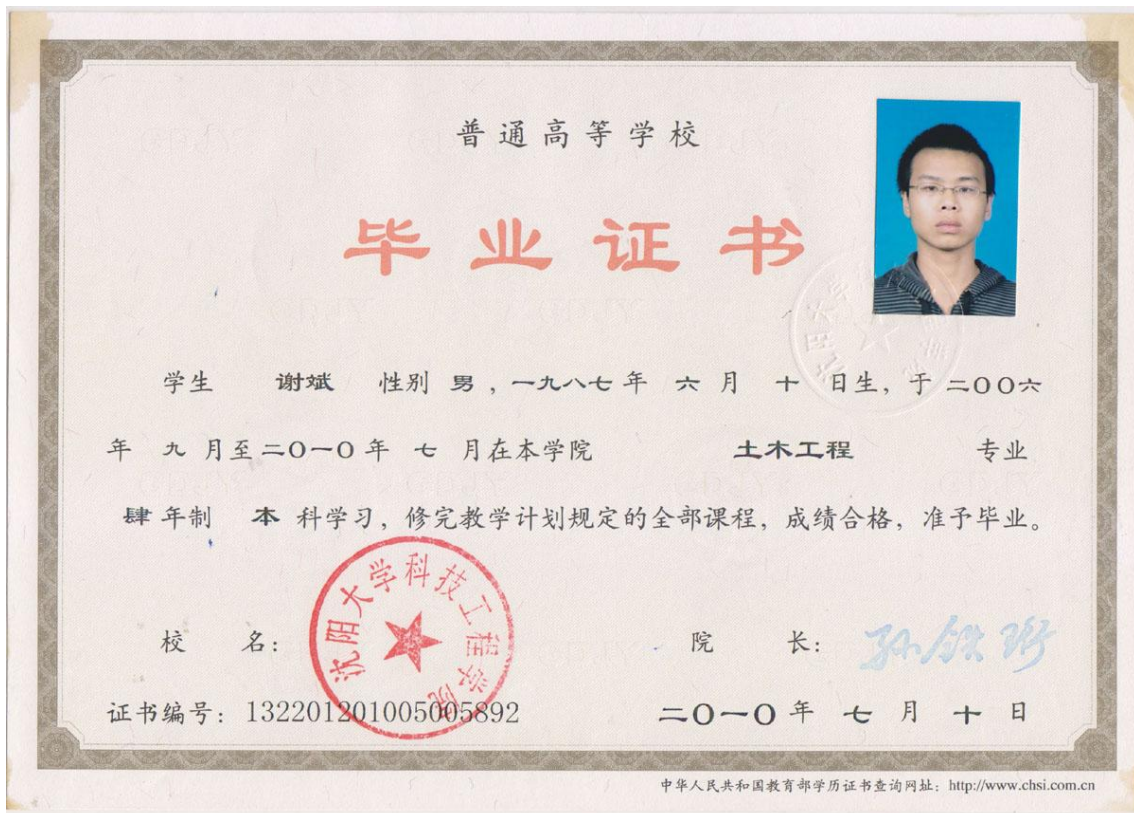 普通高等学校
毕业证书
学生 谢斌 性别 男，一九八七年 六 月 十 日生，于二〇〇六
年 九 月至二〇一〇年 七 月在本学院 土木工程 专业
肆年制 本 科学习，修完教学计划规定的全部课程，成绩合格，准予毕业。
沈阳大学科技工程学院
校 名： 院 长： 孙铁珩
证书编号：132201201005005892 二〇一〇年 七 月 十 日
中华人民共和国教育部学历证书查询网址：http://www.chsi.com.cn